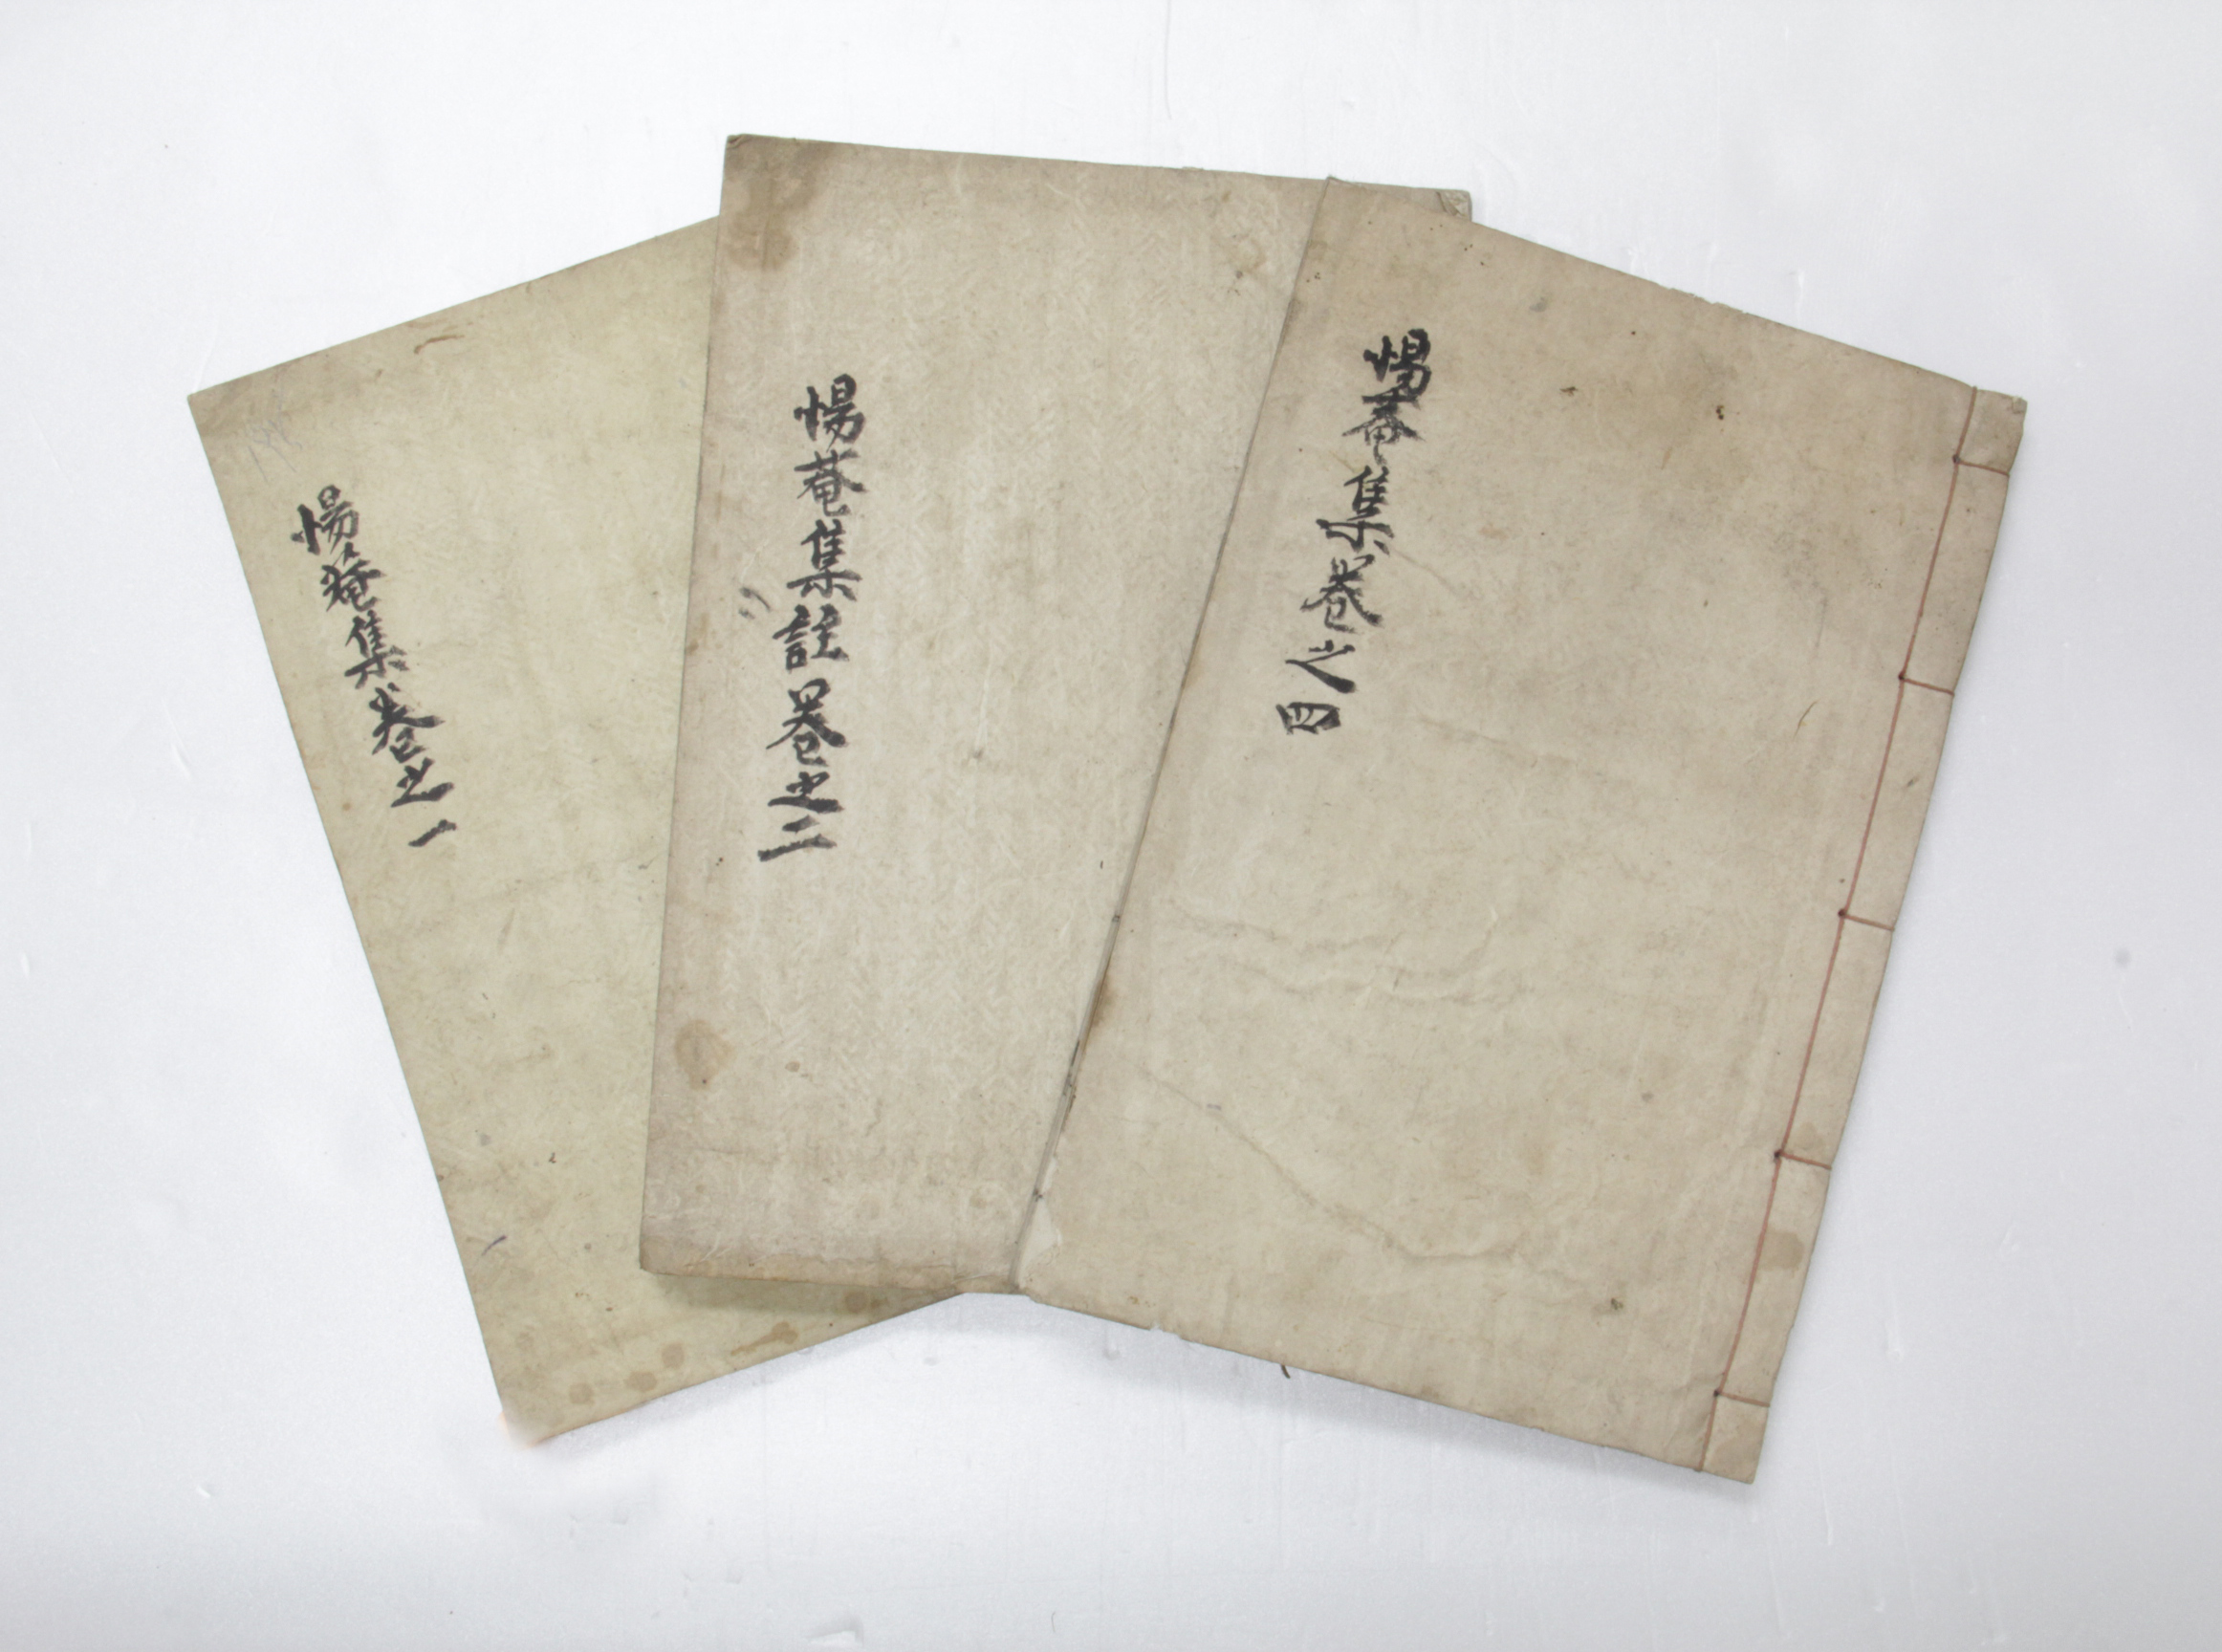 惕菴集卷之一
惕菴集註卷之二
惕菴集卷之四